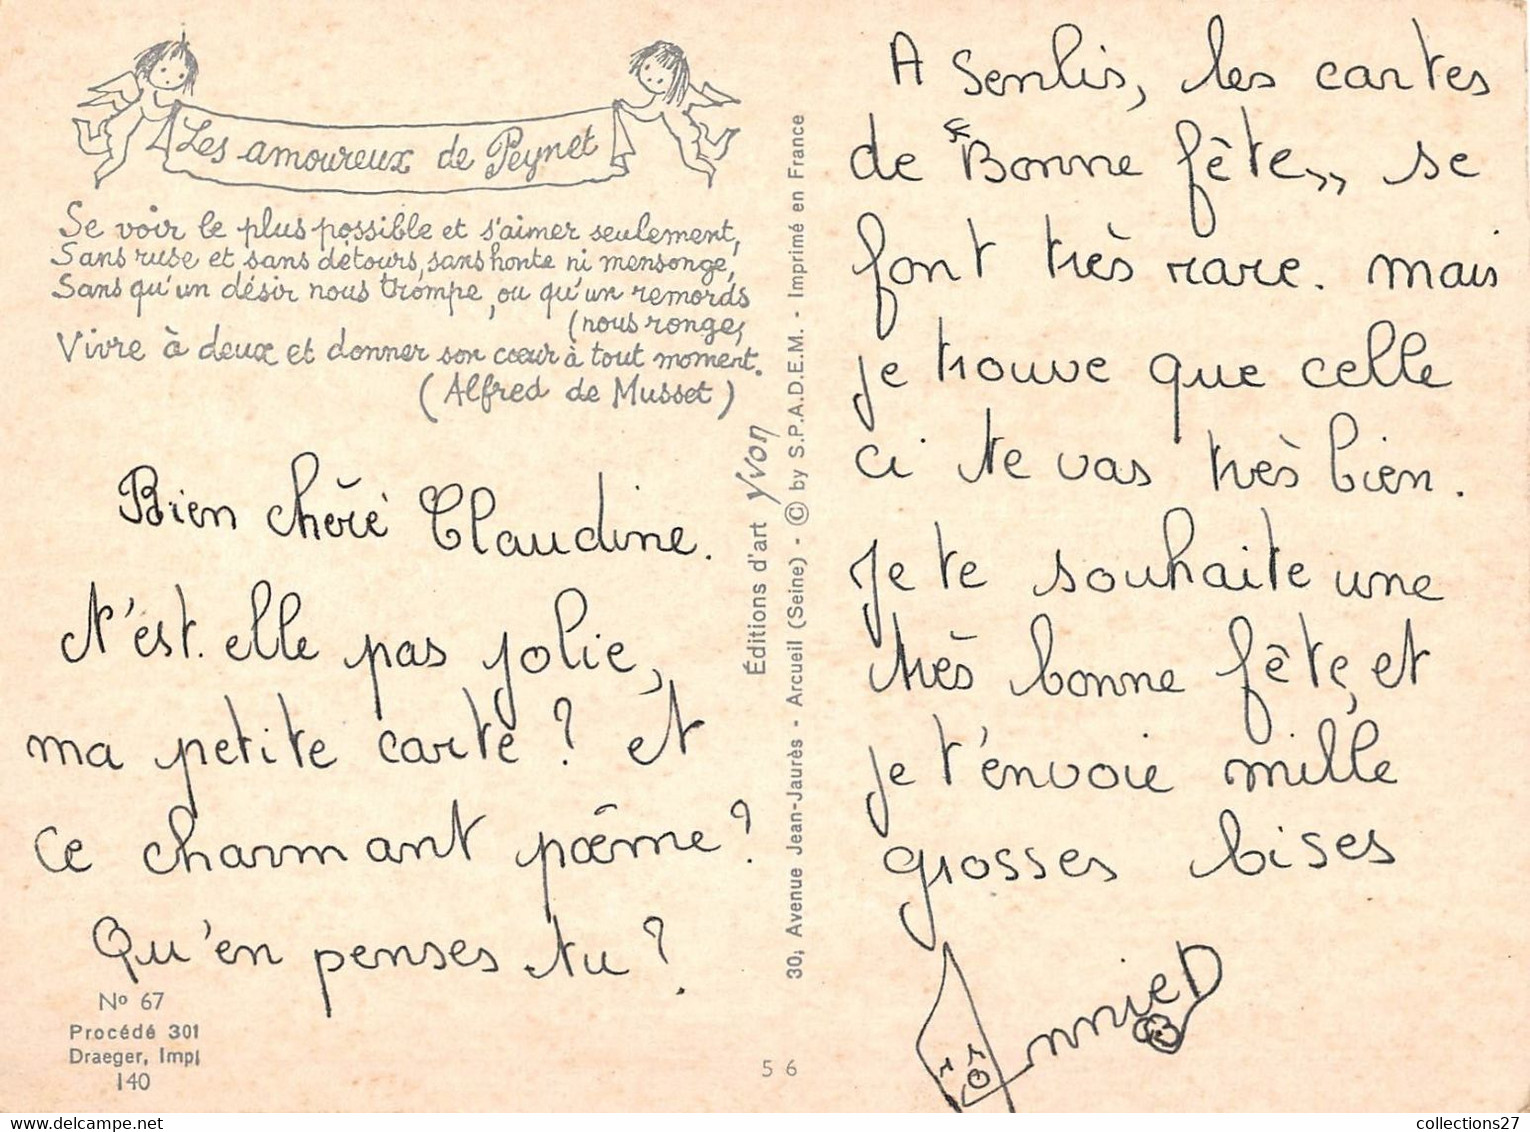 Les amoureux de Peynet
Se voir le plus possible et s'aimer seulement,
Sans ruse et sans détours, sans honte ni mensonge,
Sans qu'un désir nous trompe, ou qu'un remords
(nous ronge,
Vivre à deux et donner son cœur à tout moment.
(Alfred de Musset)
Bien chère Claudine.
N'est. elle pas jolie,
ma petite carte ? et
ce charmant poême ?
Qu'en penses tu ?
Nº 67
Procédé 301
Draeger, Impl
140
Éditions d'art Yvon
30, Avenue Jean-Jaurès - Arcueil (Seine) - © by S.P.A.D.E.M. - Imprimé en France
5 6
A Senlis, les cartes
de "Bonne fête,, se
font très rare. mais
je trouve que celle
ci te vas très bien.
Je te souhaite une
très bonne fête, et
je t'envoie mille
grosses bises
Annie D
collections27